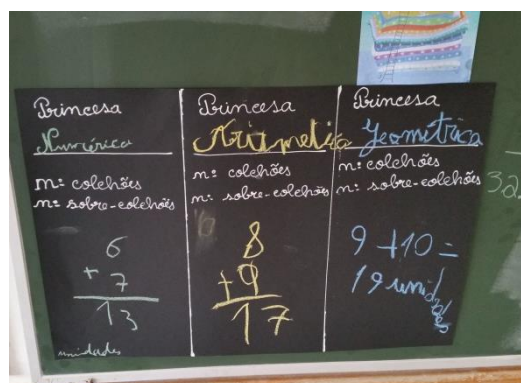 Princesa
Numérica
nº colchões
nº sobre-colchões
6
+ 7
13
unidades
Princesa
Aritmetica
nº colchões
nº sobre-colchões
8
+ 9
17
Princesa
Geométrica
nº colchões
nº sobre-colchões
9 + 10 =
19 unidades